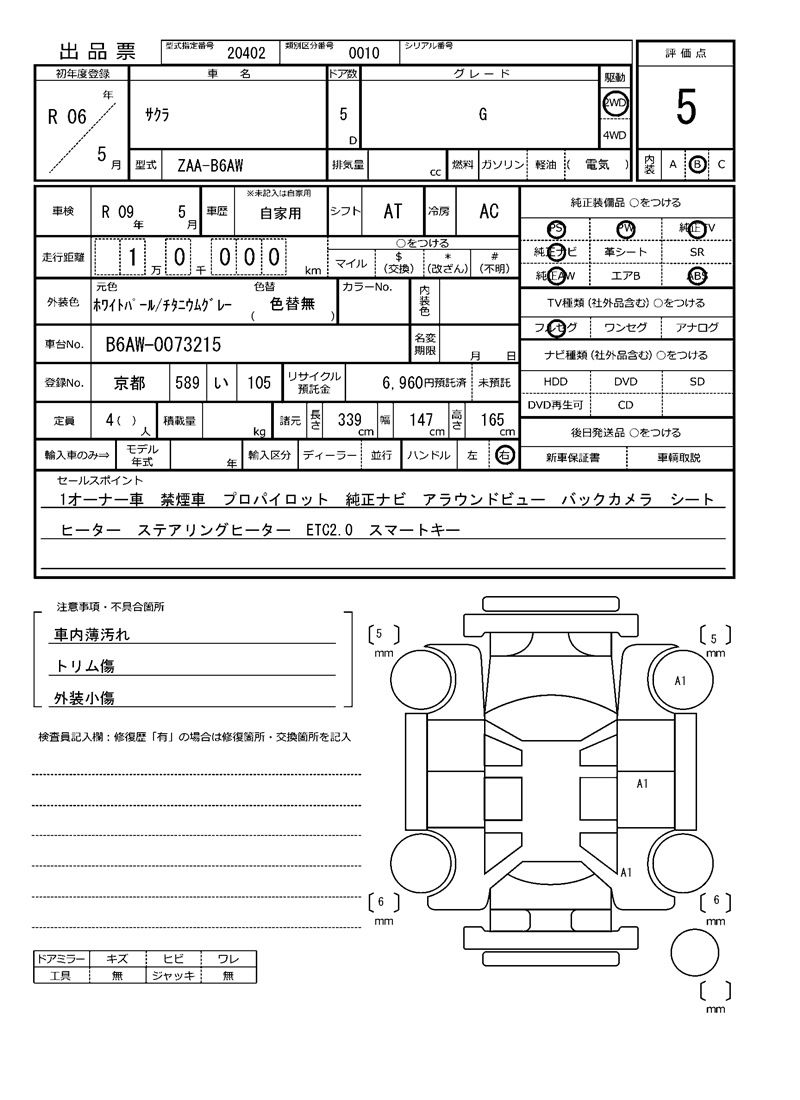 出品票 型式指定番号 20402 類別区分番号 0010 シリアル番号
評価点
5
内装 A B C
初年度登録 車名 ドア数 グレード 駆動
R 06 年 5 月
サクラ
5 D
G
2WD
4WD
型式 ZAA-B6AW 排気量 cc 燃料 ガソリン 軽油 ( 電気 )
車検 R 09 年 5 月 車歴 ※未記入は自家用 自家用 シフト AT 冷房 AC
走行距離 1 万 0 千 0 0 0 km
○をつける
マイル $(交換) *(改ざん) #(不明)
外装色 元色 色替 カラーNo. 内装色
ホワイトパール/チタニウムグレー ( 色替無 )
車台No. B6AW-0073215 名変期限 月 日
登録No. 京都 589 い 105 リサイクル預託金 6,960円預託済 未預託
定員 4( ) 人 積載量 kg 諸元 長さ 339 cm 幅 147 cm 高さ 165 cm
輸入車のみ⇒ モデル年式 年 輸入区分 ディーラー 並行 ハンドル 左 右
純正装備品 ○をつける
PS PW 純正TV
純正ナビ 革シート SR
純正AW エアB ABS
TV種類(社外品含む)○をつける
フルセグ ワンセグ アナログ
ナビ種類(社外品含む)○をつける
HDD DVD SD
DVD再生可 CD
後日発送品 ○をつける
新車保証書 車輌取説
セールスポイント
1オーナー車 禁煙車 プロパイロット 純正ナビ アラウンドビュー バックカメラ シート
ヒーター ステアリングヒーター ETC2.0 スマートキー
注意事項・不具合箇所
車内薄汚れ
トリム傷
外装小傷
検査員記入欄:修復歴「有」の場合は修復箇所・交換箇所を記入
ドアミラー キズ ヒビ ワレ
工具 無 ジャッキ 無
[ 5 ] mm
[ 5 ] mm
A1
A1
A1
[ 6 ] mm
[ 6 ] mm
[ ] mm